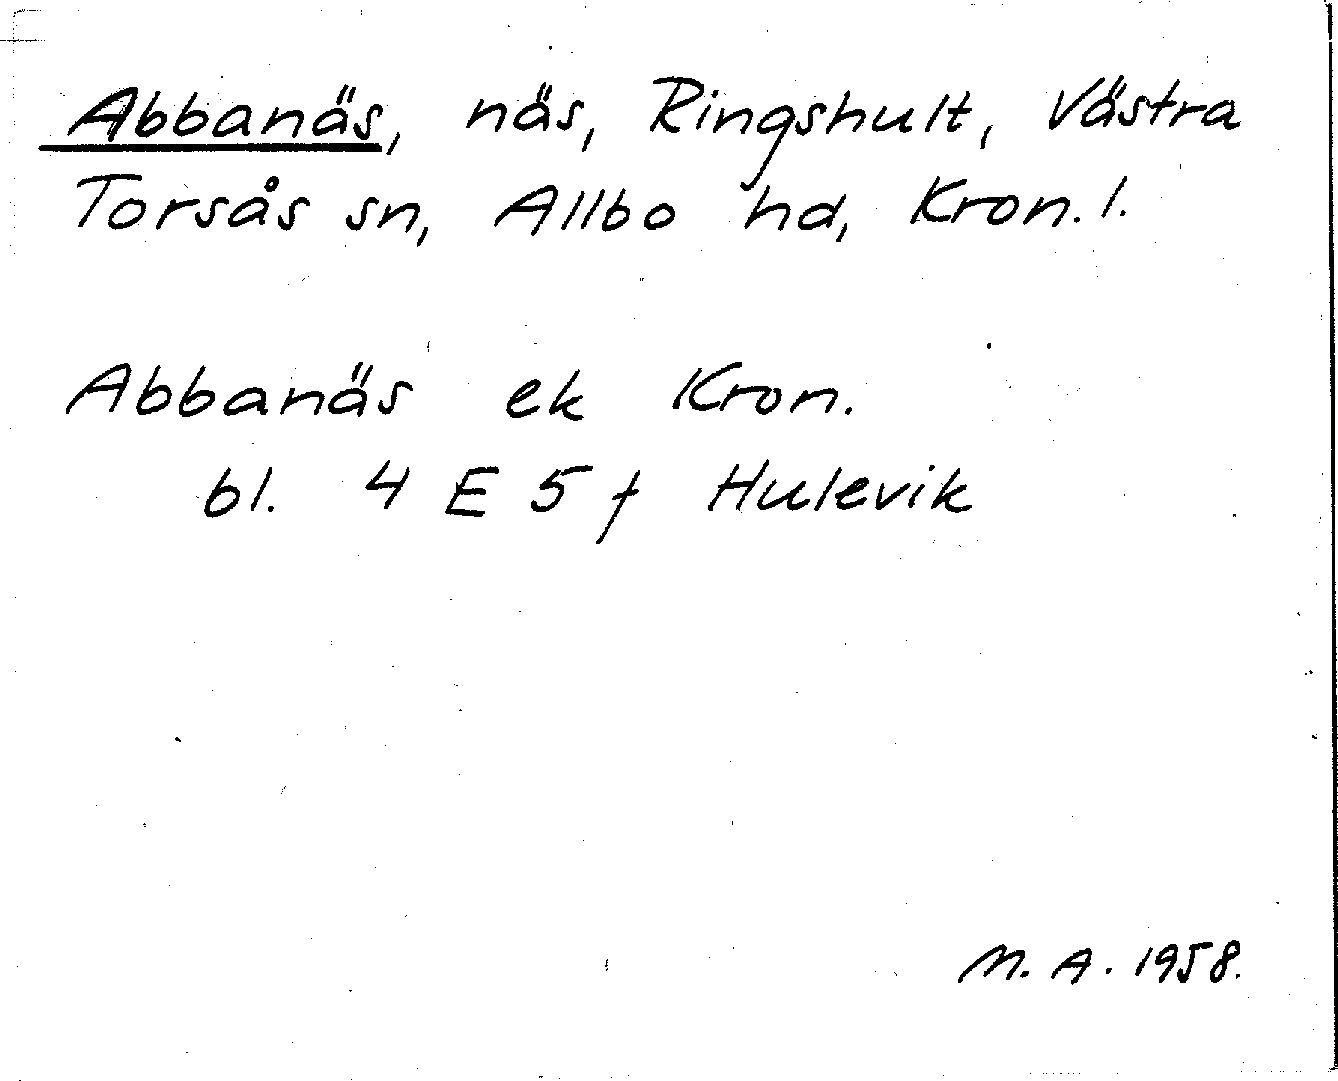 Abbanäs, näs, Ringshult, Västra
Torsås sn, Allbo hd, Kron. l.
Abbanäs ek Kron.
bl. 4 E 5 f Hulevik
M. A. 1958.